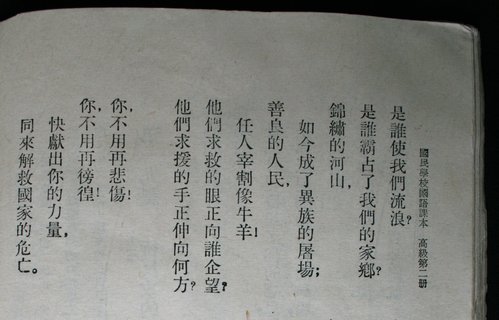 國民學校國語課本 高級第二册
是誰使我們流浪？
是誰霸占了我們的家鄉？
錦繡的河山，
如今成了異族的屠場；
善良的人民，
任人宰割像牛羊！
他們求救的眼正向誰企望？
他們求援的手正伸向何方？
你，不用再悲傷！
你，不用再徬徨！
快獻出你的力量，
同來解救國家的危亡。